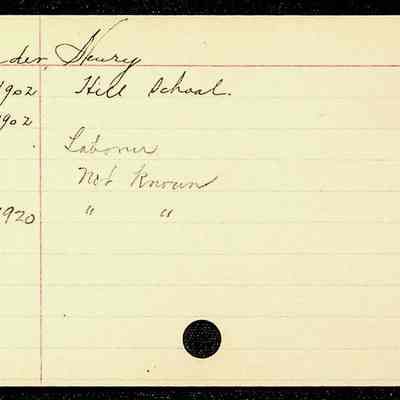 der, Henry
1902 Hill School.
1902
Laborer
Not Known
1920 " "